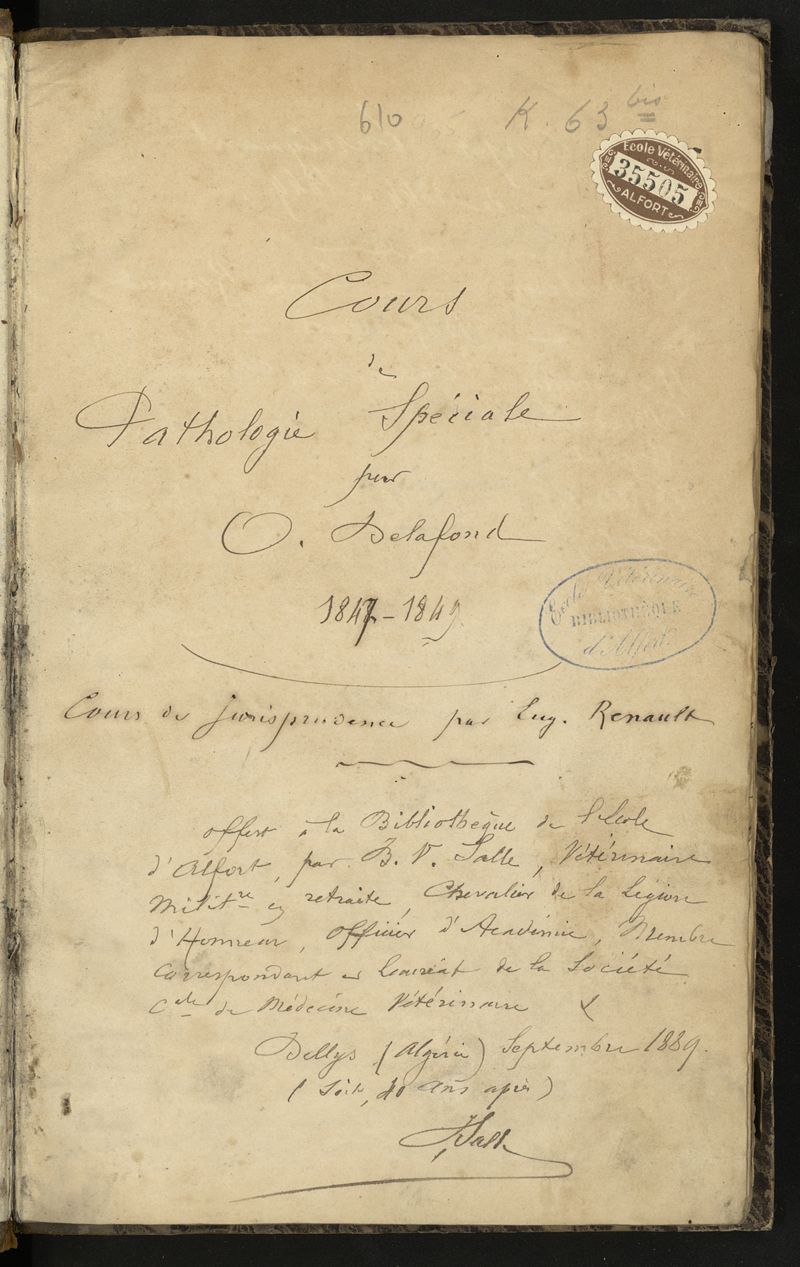 610
K. 63 bis
Ecole Vétérinaire
35505
ALFORT
Cours
de
Pathologie Spéciale
par
O. Delafond
1847-1849.
Ecole Vétérinaire
BIBLIOTHÈQUE
d'Alfort.
Cours de Jurisprudence par Eug. Renault
offert à la Bibliothèque de l'Ecole
d'Alfort, par B. V. Salle, Vétérinaire
Militre en retraite, Chevalier de la Légion
d'Honneur, Officier d'Académie, Membre
Correspondant et Lauréat de la Société
Cale de Médecine Vétérinaire
Dellys (Algérie) Septembre 1889.
(Soit, 40 ans après)
Salle